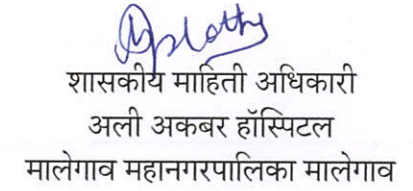 शासकीय माहिती अधिकारी
अली अकबर हॉस्पिटल
मालेगाव महानगरपालिका मालेगाव